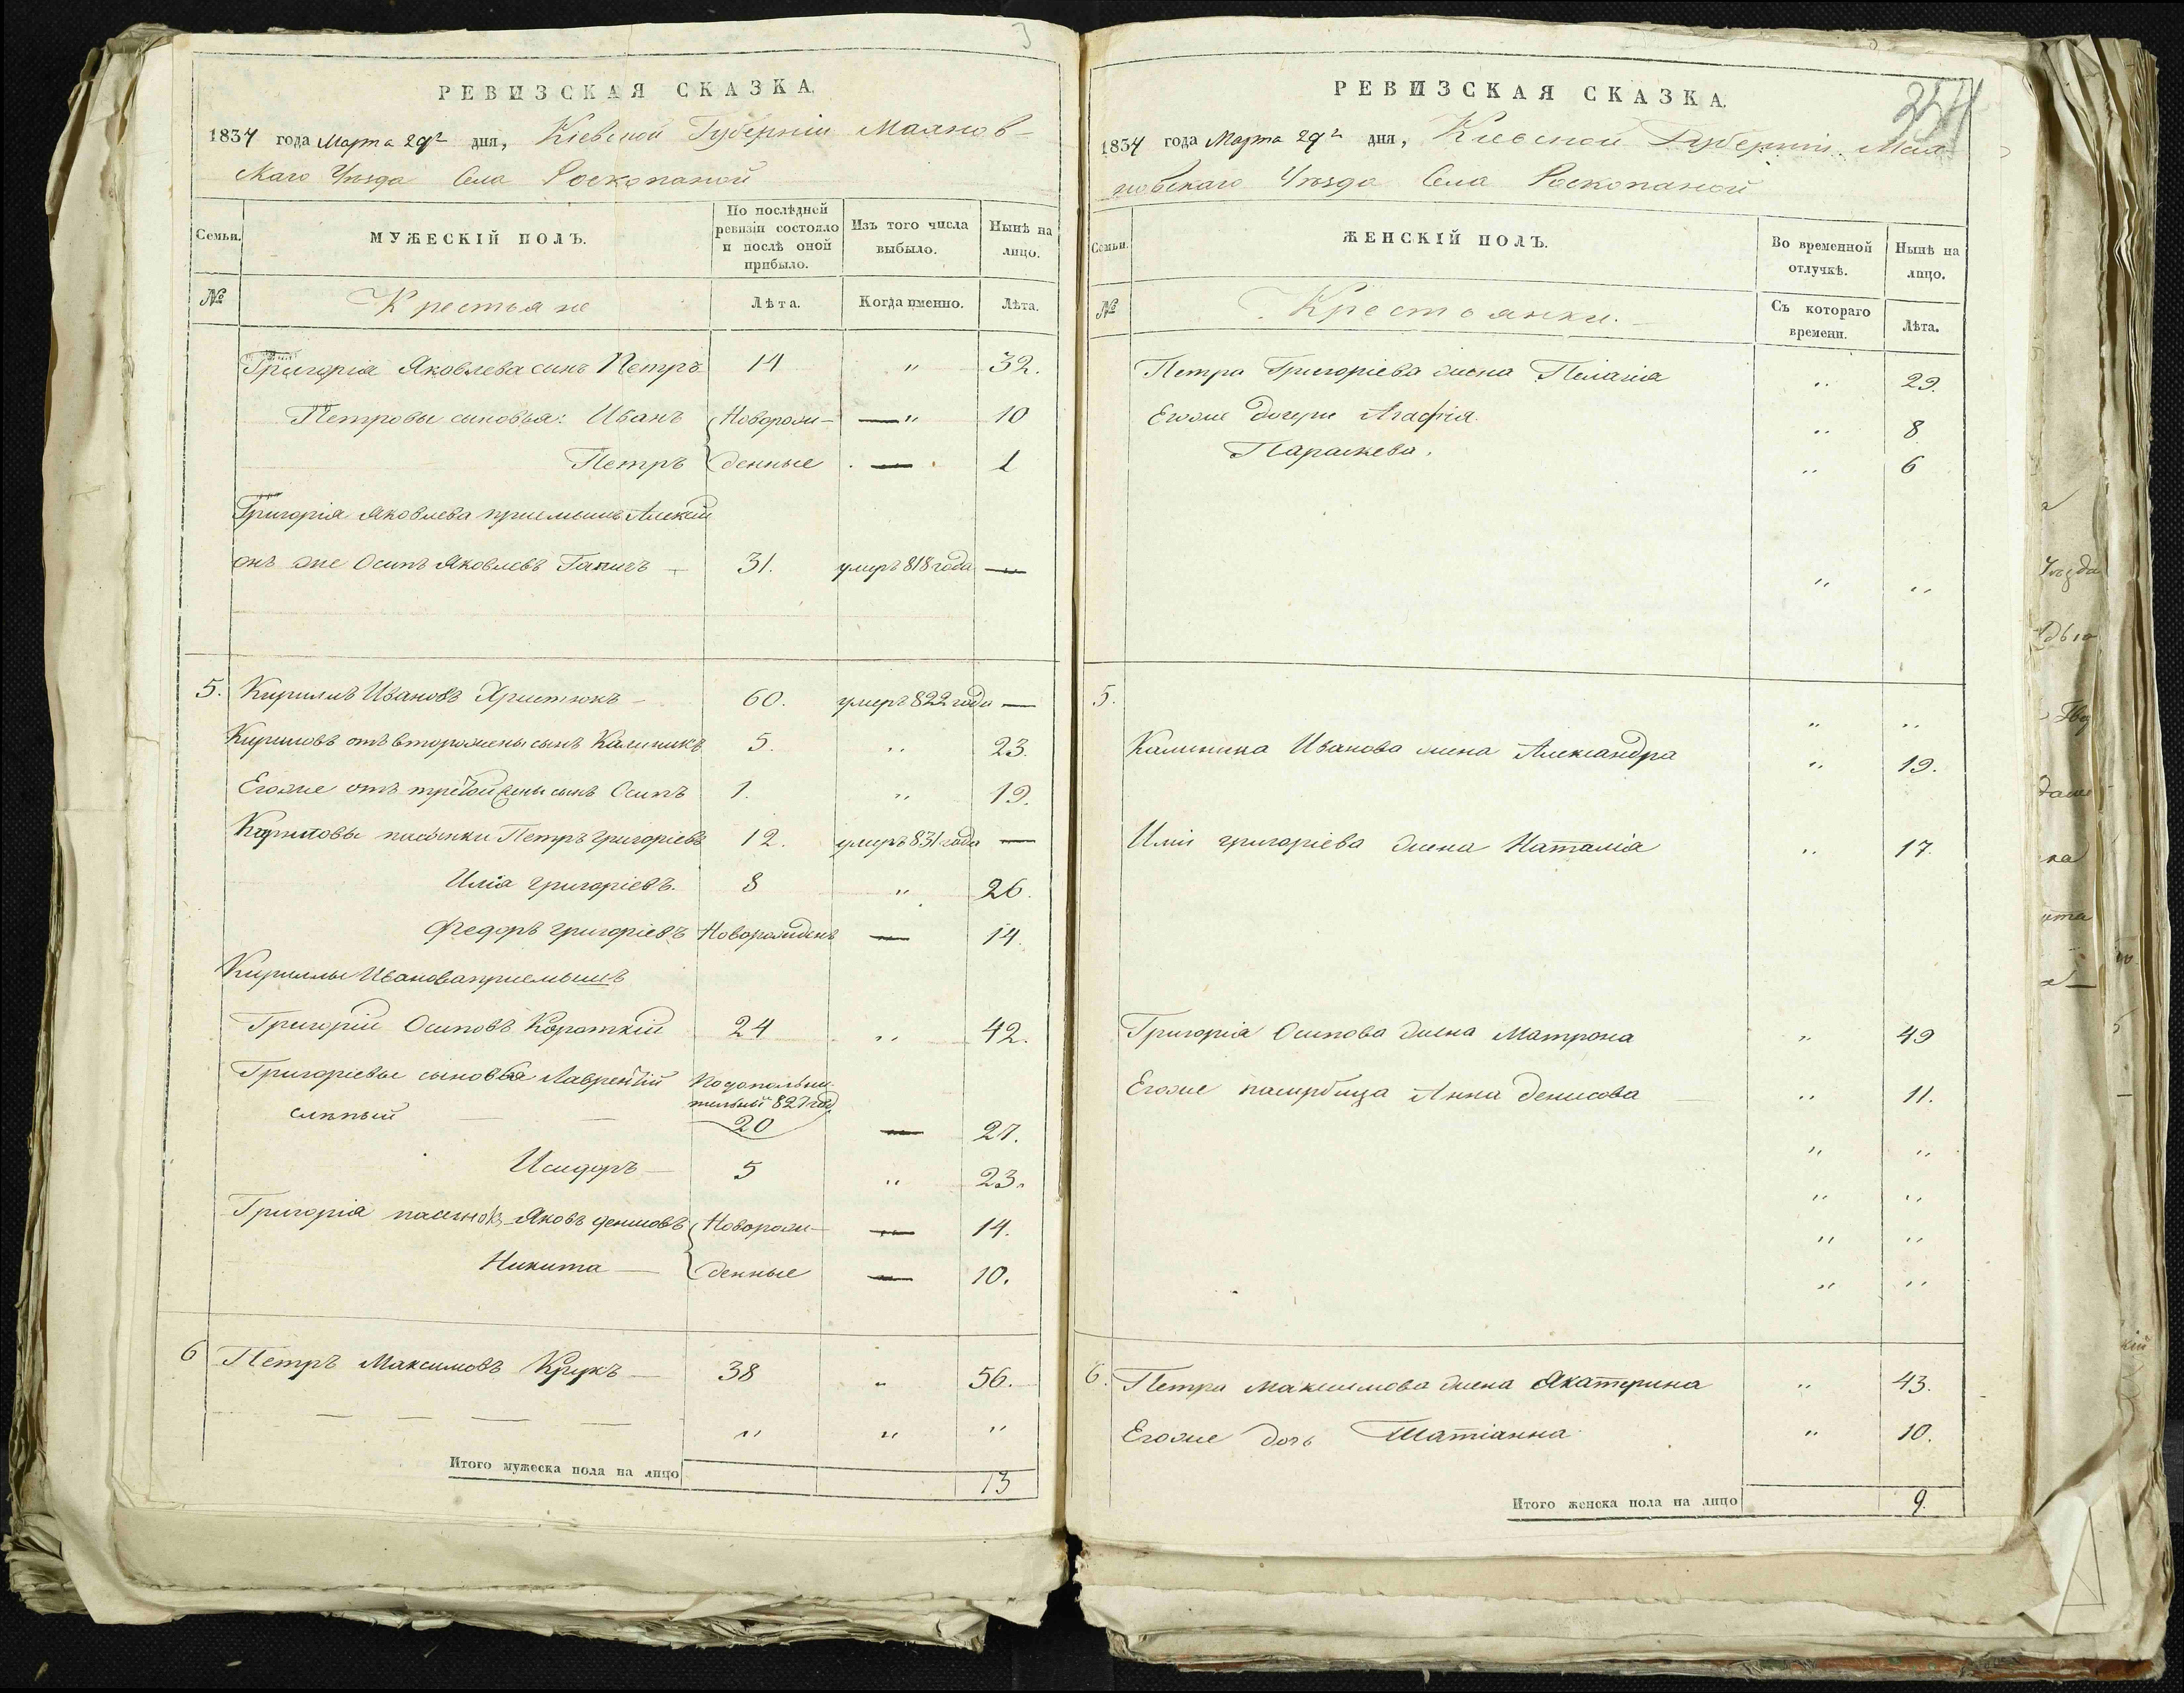 3
РЕВИЗСКАЯ СКАЗКА.
1834 года Марта 29го дня, Кіевской Губерніи Маянов-
скаго Уѣзда Села Роскопаной
Семьи.
МУЖЕСКІЙ ПОЛЪ.
По послѣдней ревизіи состояло и послѣ оной прибыло.
Изъ того числа выбыло.
Нынѣ на лицо.
№ Крестьяне Лѣта. Когда именно. Лѣта.
Григорія Яковлева сынъ Петръ 14 " 32.
Петровы сыновья: Иванъ Новорож- — " 10
Петръ денные — 1
Григорія Яковлева приемышъ Алексѣй
онъ же Осипъ Яковлевъ 31. умеръ 818 года —
5. Кирилъ Ивановъ Христюкъ 60. умеръ 822 года —
Кириловъ отъ второй жены сынъ Калиникъ 5. " 23.
Егоже отъ третьей жены сынъ Осипъ 1. " 19.
Кириловы пасынки Петръ Григоріевъ 12. умеръ 831 года —
Илія Григоріевъ. 8 " 26.
Федоръ Григоріевъ Новорожденъ — 14.
Кириллы Иванова приемышъ
Григорій Осиповъ Короткій 24 " 42.
Григоріевы сыновья Лаврентій По дополни-
слѣпый тельной 827 год
20 — 27.
Исидоръ — 5 " 23.
Григорія пасынокъ Яковъ Денисовъ Новорож- — 14.
Никита — денные — 10.
6 Петръ Максимовъ Крукъ — 38 " 56.
" " "
Итого мужеска пола на лицо 13
РЕВИЗСКАЯ СКАЗКА.
1834 года Марта 29го дня, Кіевской Губерніи Мая-
новскаго Уѣзда Села Роскопаной
Семьи.
ЖЕНСКІЙ ПОЛЪ.
Во временной отлучкѣ.
Нынѣ на лицо.
№ Крестьянки. Съ котораго времени. Лѣта.
Петра Григоріева жена Пелагія " 29.
Егоже дочери Агафія. " 8
Параскева. " 6
" "
5. " "
Калиника Иванова жена Александра " 19.
Иліи Григоріева жена Наталія " 17.
Григорія Осипова жена Матрона " 49
Егоже падчерица Анна Денисова " 11.
" "
" "
" "
" "
6. Петра Максимова жена Екатерина " 43.
Егоже дочь Татіанна " 10.
Итого женска пола на лицо 9.
Уѣзда